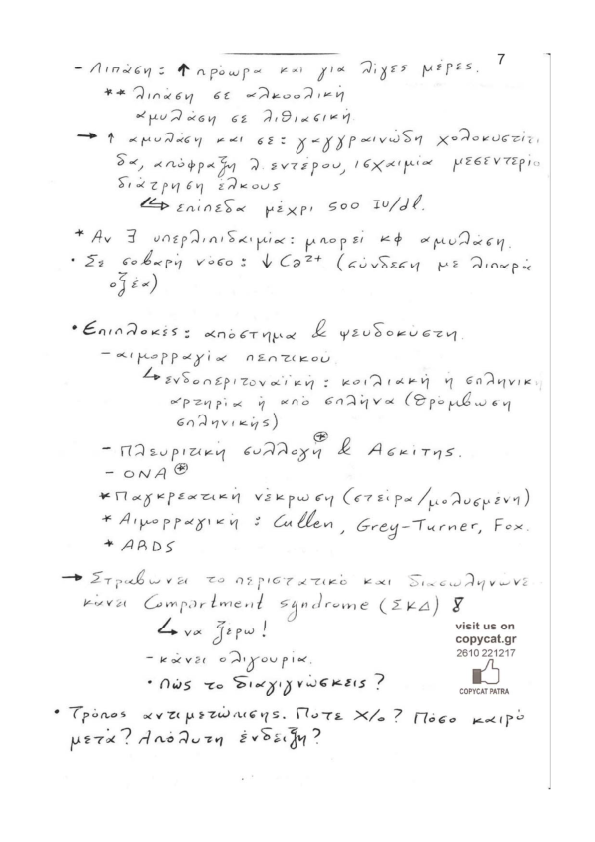 7
- Λιπάση: ↑ πρόωρα και για λίγες μέρες.
** λιπάση σε αλκοολική
αμυλάση σε λιθιασική
→ ↑ αμυλάση και σε: γαγγραινώδη χολοκυστίτι
δα, απόφραξη λ. εντέρου, ισχαιμία μεσεντερίο
διάτρηση έλκους
↳ επίπεδα μέχρι 500 IU/dl.
* Αν ∃ υπερλιπιδαιμία: μπορεί κφ αμυλάση.
• Σε σοβαρή νόσο: ↓ Ca2+ (σύνδεση με λιπαρά
οξέα)
• Επιπλοκές: απόστημα & ψευδοκύστη.
- αιμορραγία πεπτικού.
↳ ενδοπεριτοναϊκή: κοιλιακή ή σπληνικη
αρτηρία ή από σπλήνα (θρόμβωση
σπληνικής)
- Πλευριτική συλλογή * & Ασκίτης.
- ΟΝΑ *
* Παγκρεατική νέκρωση (στείρα/μολυσμένη)
* Αιμορραγική: Cullen, Grey-Turner, Fox.
* ARDS
→ Στραβώνει το περιστατικό και διασωληνώνε
κάνει Compartment syndrome (ΣΚΔ) 8
↳ να ξέρω!
- κάνει ολιγουρία.
• Πώς το διαγιγνώσκεις?
visit us on
copycat.gr
2610 221217
COPYCAT PATRA
• Τρόπος αντιμετώπισης. Ποτε Χ/ο? Πόσο καιρό
μετά? Απόλυτη ένδειξη?